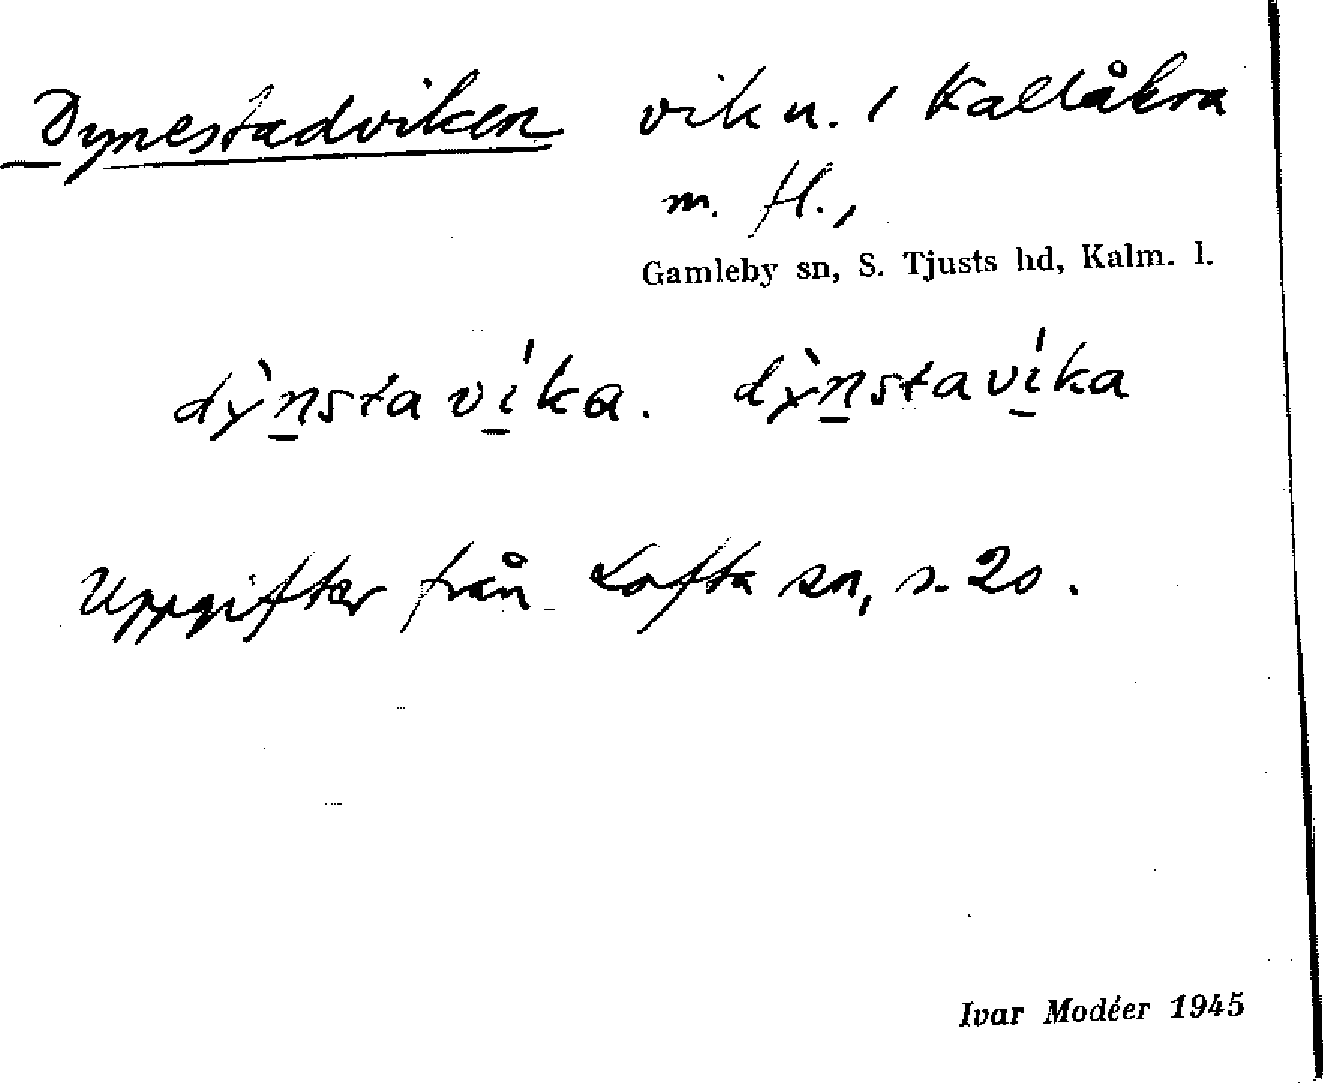 Dynestadviken vik u. 1 Kallåkra
m. fl.,
Gamleby sn, S. Tjusts hd, Kalm. l.
dỳn̲staví̲ka. dỳn̲staví̲ka
Uppgifter från Lofta sn, s. 20.
Ivar Modéer 1945